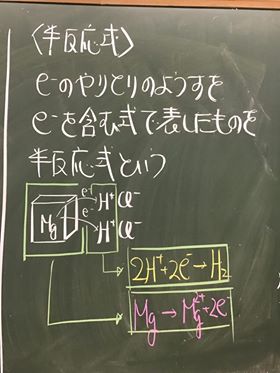 〈半反応式〉
e⁻のやりとりのようすを
e⁻を含む式で表したものを
半反応式という
e⁻ H⁺ Cl⁻
Mg e⁻ H⁺ Cl⁻
2H⁺+2e⁻→H₂
Mg→Mg²⁺+2e⁻